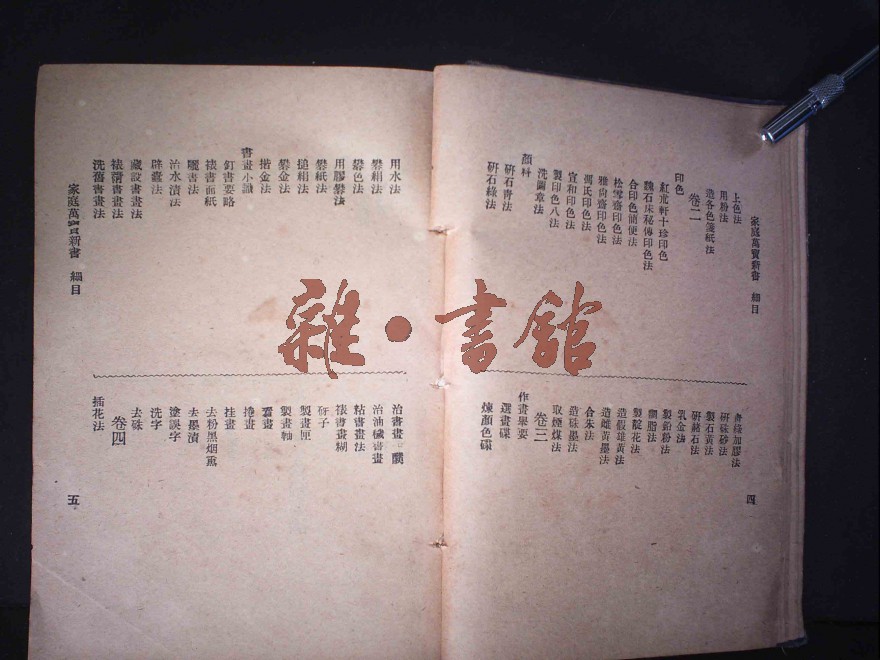 家庭萬寶新書 細目
上色法
用粉法
造各色箋紙法
卷二
印色
紅朮軒十珍印色
魏石床秘傳印色法
合印色簡便法
松雪齋印色法
雅尚齋印色法
馮氏印色法
宣和印色法
製印色八法
洗圖章法
顏料
研石青法
研石綠法
青綠加膠法
研硃砂法
製石黃法
研赭石法
乳金法
製鉛粉法
調脂法
製靛花法
造假雄黃法
造雌黃墨法
合朱法
造硃墨法
取煙煤法
卷三
作畫舉要
選畫碟
煉顏色碟
四
用水法
礬絹法
礬色法
用膠礬法
礬紙法
搥絹法
礬金法
揩金法
書畫小識
釘書要略
裱書面紙
曬書法
治水漬法
辟蠹法
藏設書畫法
裱褙書畫法
洗舊書畫法
家庭萬寶新書 細目
治書畫
治油穢書畫
粘書畫法
裱書畫糊
砑子
製畫匣
製畫軸
畫
捲畫
挂畫
去粉黑烟熏
去墨漬
塗誤字
洗字
去硃
卷四
插花法
五
雜·書館